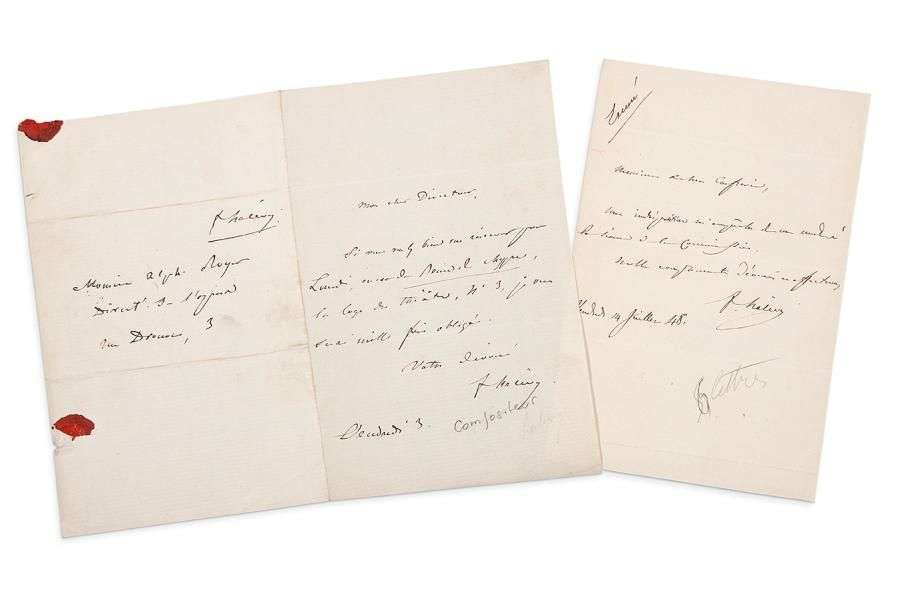 F. Halévy.
Monsieur Alph. Royer
Direct. de l'opéra
rue Drouot, 3
Mon cher Directeur,
Si vous voulez bien me réserver pour
Lundi, seconde
la loge de théâtre, N° 3, je vous
serai mille fois obligé.
Votre dévoué
F. Halévy.
Vendredi 3.
Compositeur
Monsieur et cher Confrère,
une indisposition m'empêche de me rendre
à la Commission.
Mille compliments
F. Halévy
Vendredi 14 Juillet 48.